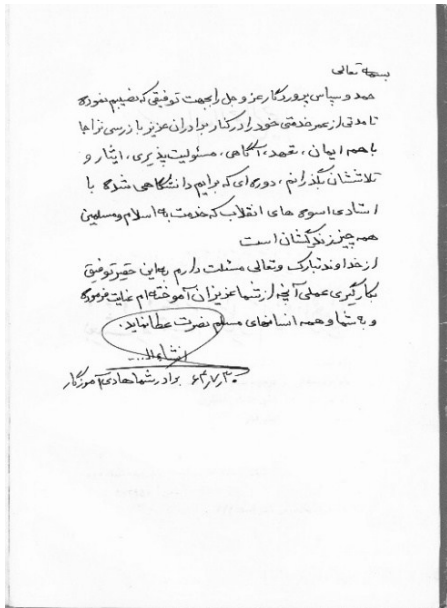 بسمه تعالی
حمد و سپاس پروردگار عز و جل را بجهت توفیقی که نصیبم نموده
تا مدتی از عمر خدمتی خود را در کنار برادران عزیز بازرسی نزاجا
با همه ایمان، تعهد، آگاهی، مسئولیت پذیری، ایثار و
تلاششان بگذرانم، دوره ای که برایم دانشگاهی شده با
استادی اسوه های انقلاب که خدمت به اسلام و مسلمین
همه چیز زندگیشان است
از خداوند تبارک و تعالی مسئلت دارم به این حقیر توفیق
بکارگیری عملی آنچه از شما عزیزان آموخته ام عنایت فرموده
و به شما و همه انسانهای مسلم نصرت عطا نماید.
انشاءا...
۶۴/۷/۳۰ برادر شما هادی آموزگار